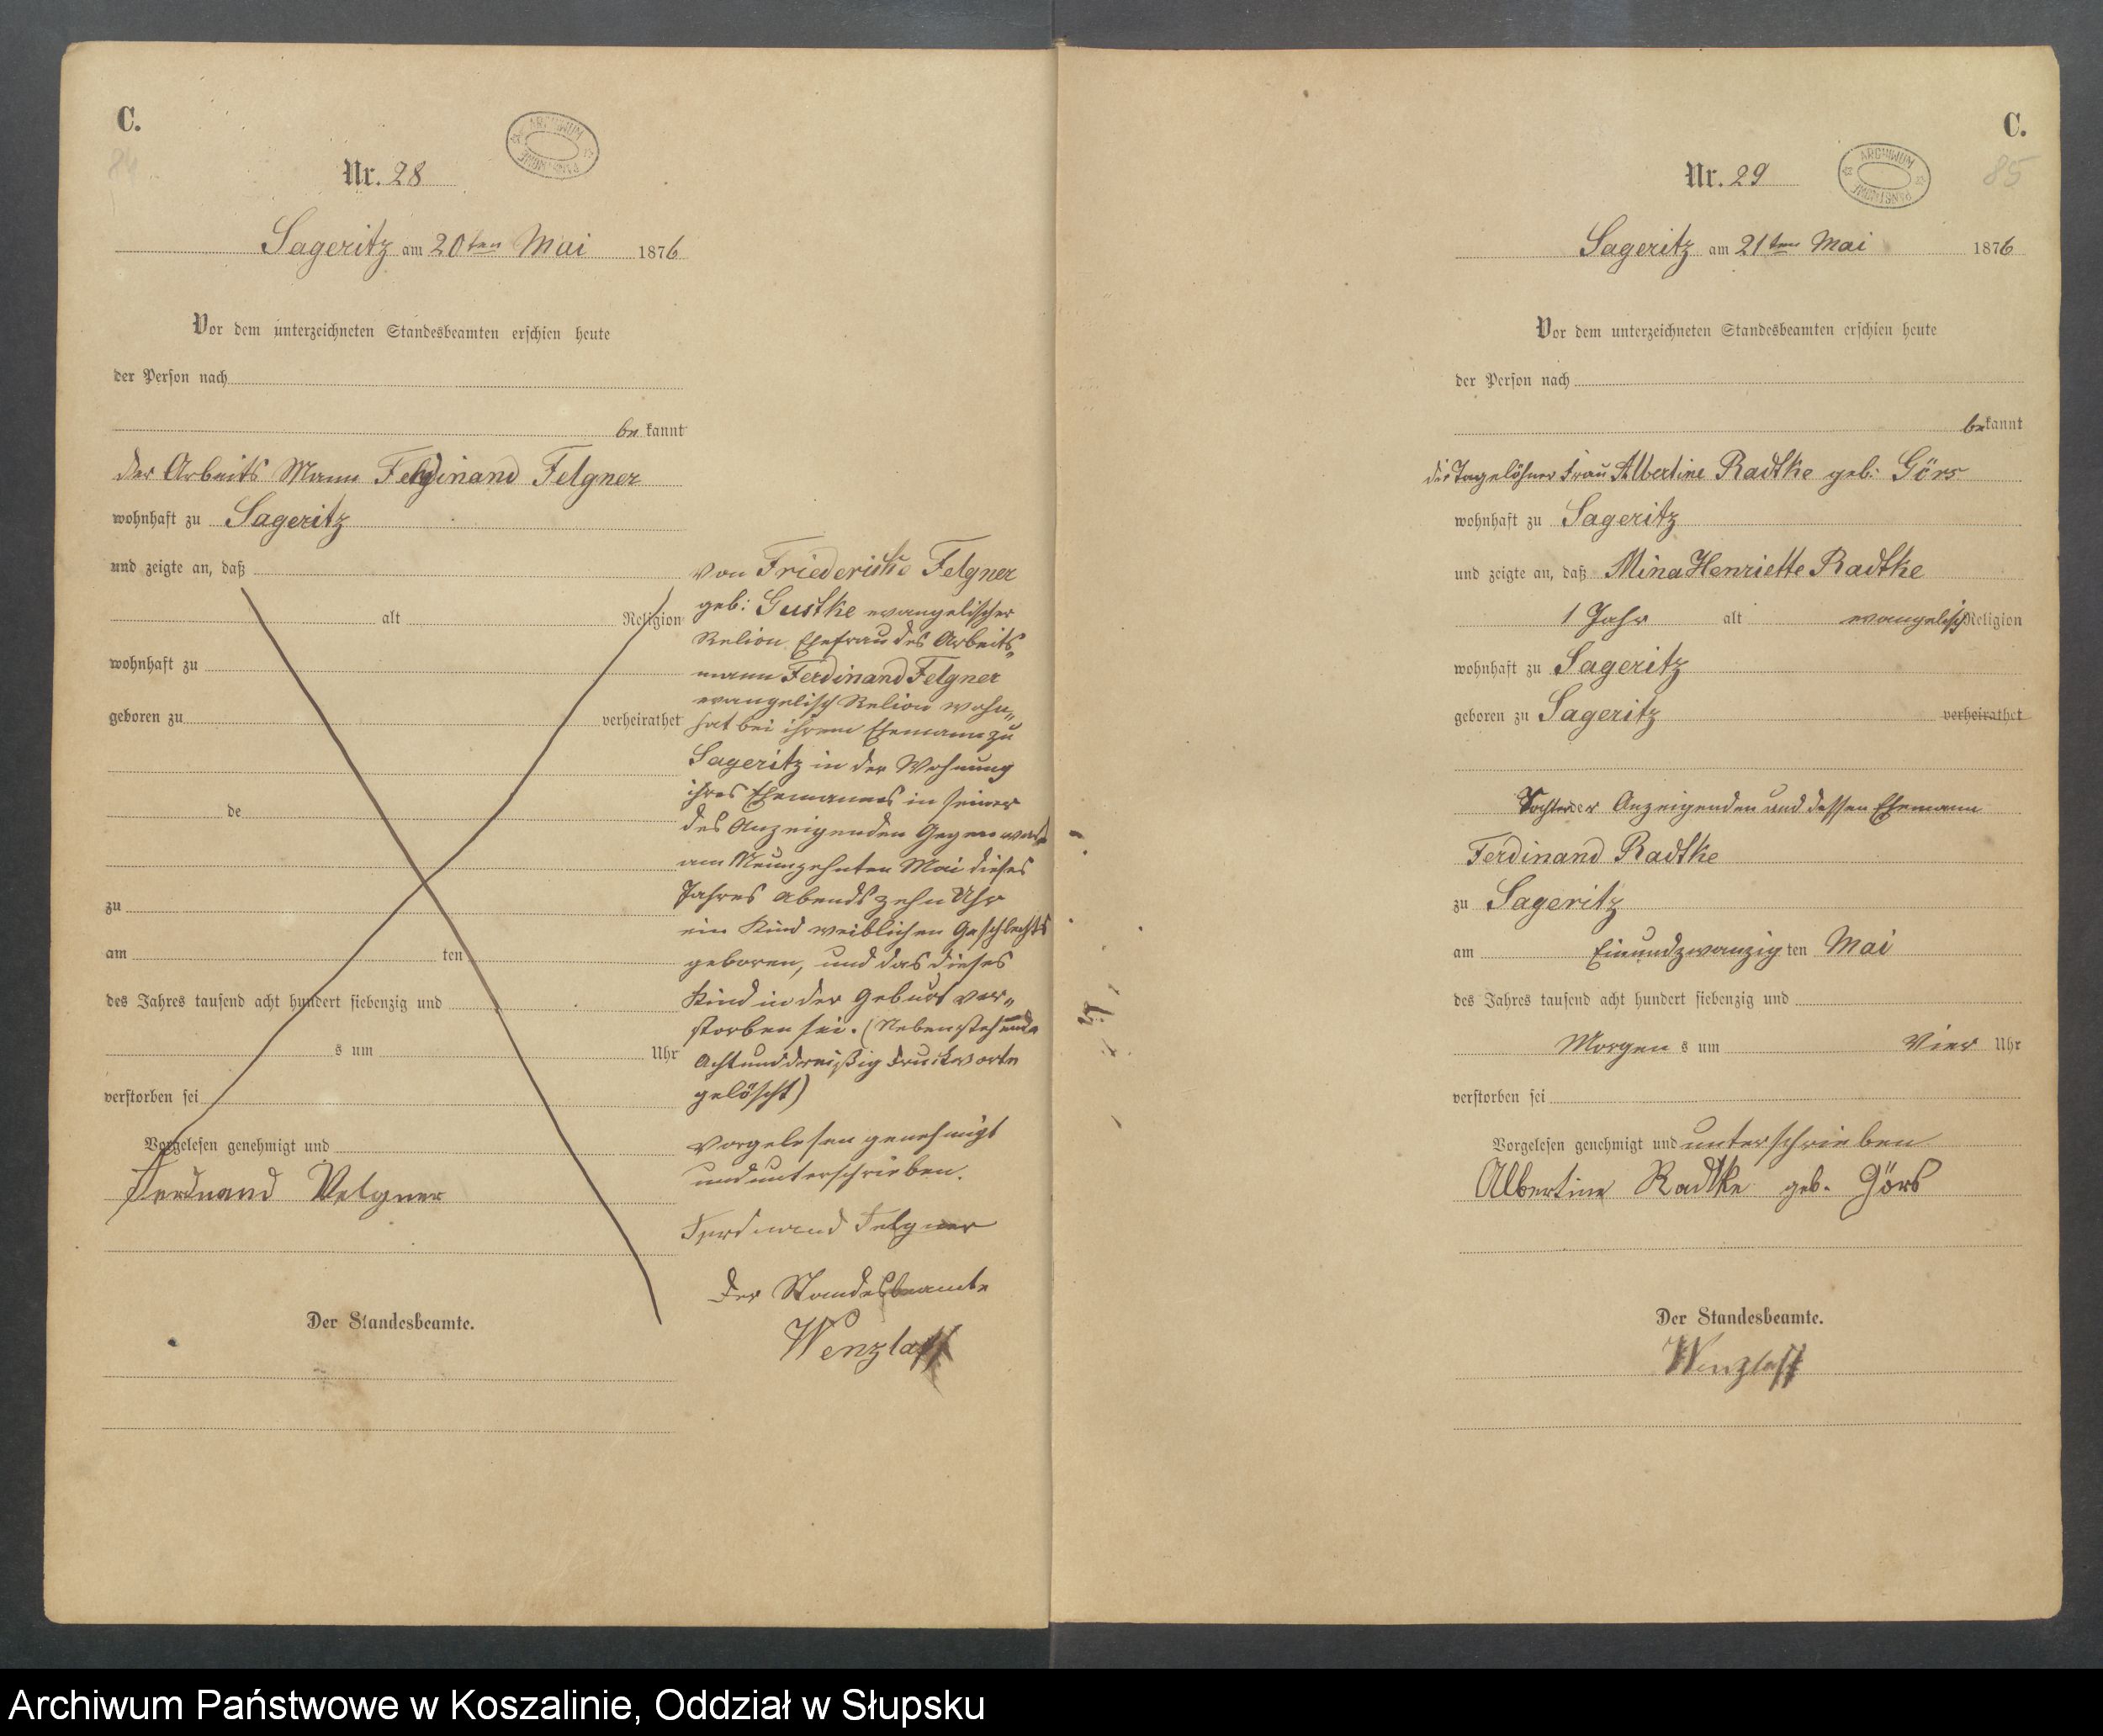 C.
84
ARCHIWUM PAŃSTWOWE
Nr. 28
Sageritz am 20ten Mai 1876
Vor dem unterzeichneten Standesbeamten erschien heute
der Person nach
be kannt
der Arbeits Mann Ferdinand Felgner
wohnhaft zu Sageritz
und zeigte an, daß
alt Religion
wohnhaft zu
geboren zu verheirathet
de
zu
am ten
des Jahres tausend acht hundert siebenzig und
s um Uhr
verstorben sei
Vorgelesen genehmigt und
Ferdnand Velgner
Der Standesbeamte.
von Friederike Felgner
geb: Gustke evangelischer
Relion Ehefrau des Arbeits„
mann Ferdinand Felgner
evangelisch Relion wohn„
hat bei ihrem Ehemann zu
Sageritz in der Wohnung
ihres Ehemannes in seiner
des Anzeigenden Gegenwart
am Neunzehnten Mai dieses
Jahres Abends zehn Uhr
ein Kind weiblichen Geschlechts
geboren, und das dieses
Kind in der Geburt ver„
storben sei. (Nebenstehende
Achtunddreißig Druckworte
gelöscht)
Vorgelesen genehmigt
und unterschrieben.
Ferdinand Felgner
Der Standesbeamte
Wenzlaff
C.
85
ARCHIWUM PAŃSTWOWE
Nr. 29
Sageritz am 21ten Mai 1876
Vor dem unterzeichneten Standesbeamten erschien heute
der Person nach
bekannt
die Tagelöhner Frau Albertine Radtke geb: Görs
wohnhaft zu Sageritz
und zeigte an, daß Mina Henriette Radtke
1 Jahr alt evangelisch Religion
wohnhaft zu Sageritz
geboren zu Sageritz verheirathet
Tochter der Anzeigenden und dessen Ehemann
Ferdinand Radtke
zu Sageritz
am Einundzwanzig ten Mai
des Jahres tausend acht hundert siebenzig und
Morgen s um Vier Uhr
verstorben sei
Vorgelesen genehmigt und unterschrieben
Albertine Radtke geb. Görs
Der Standesbeamte.
Wenzlaff
Archiwum Państwowe w Koszalinie, Oddział w Słupsku